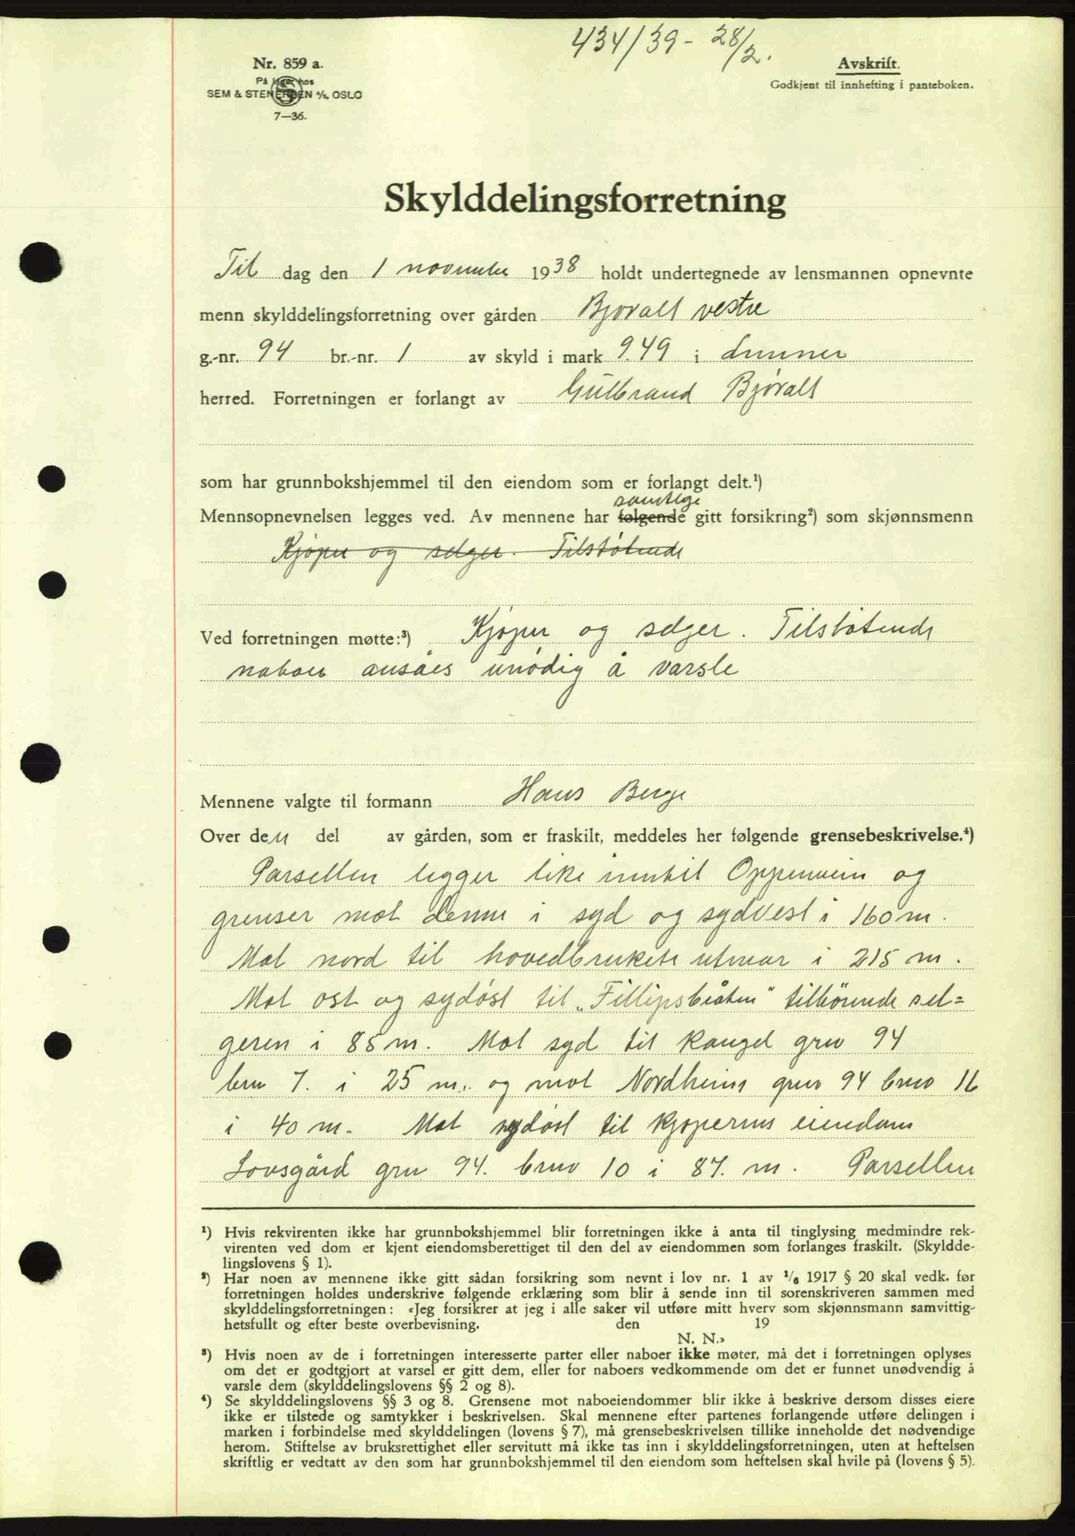 434/39 - 28/2.
Nr. 859 a.
På lager hos
SEM & STENERSEN A/S, OSLO
7—36.
Avskrift.
Godkjent til innhefting i panteboken.
Skylddelingsforretning
Til dag den 1 november 1938 holdt undertegnede av lensmannen opnevnte
menn skylddelingsforretning over gården Bjoralt vestre
g.-nr. 94 br.-nr. 1 av skyld i mark 9.49 i Lunner
herred. Forretningen er forlangt av Gulbrand Bjøralt
som har grunnbokshjemmel til den eiendom som er forlangt delt.¹)
samtlige
Mennsopnevnelsen legges ved. Av mennene har følgende gitt forsikring²) som skjønnsmenn
Kjøper og selger. Tilstøtende
Ved forretningen møtte:³) Kjøper og selger. Tilstøtende
naboer ansåes unødig å varsle
Mennene valgte til formann Hans Berge
Over den del av gården, som er fraskilt, meddeles her følgende grensebeskrivelse.⁴)
Parsellen legger like inntil Oppenvein og
grenser mot denne i syd og sydvest i 160 m.
Mot nord til hovedbrukets utmar i 215 m.
Mot ost og sydøst til „Fillipsbråten" tilhörende sel=
geren i 85 m. Mot syd til Kangel grn 94
brn 7. i 25 m. og mot Nordheim grn 94 brno 16
i 40 m. Mot sydøst til kjoperens eiendom
Lovsgård grn 94. brno 10 i 87. m. Parsellen
¹) Hvis rekvirenten ikke har grunnbokshjemmel blir forretningen ikke å anta til tinglysing medmindre rek-
virenten ved dom er kjent eiendomsberettiget til den del av eiendommen som forlanges fraskilt. (Skyldde-
lingslovens § 1).
²) Har noen av mennene ikke gitt sådan forsikring som nevnt i lov nr. 1 av ¹/₆ 1917 § 20 skal vedk. før
forretningen holdes underskrive følgende erklæring som blir å sende inn til sorenskriveren sammen med
skylddelingsforretningen: «Jeg forsikrer at jeg i alle saker vil utføre mitt hverv som skjønnsmann samvittig-
hetsfullt og efter beste overbevisning. den 19
N. N.»
³) Hvis noen av de i forretningen interesserte parter eller naboer ikke møter, må det i forretningen oplyses
om det er godtgjort at varsel er gitt dem, eller for naboers vedkommende om det er funnet unødvendig å
varsle dem (skylddelingslovens §§ 2 og 8).
⁴) Se skylddelingslovens §§ 3 og 8. Grensene mot naboeiendommer blir ikke å beskrive dersom disses eiere
ikke er tilstede og samtykker i beskrivelsen. Skal mennene efter partenes forlangende utføre delingen i
marken i forbindelse med skylddelingen (lovens § 7), må grensebeskrivelsen tillike inneholde det nødvendige
herom. Stiftelse av bruksrettighet eller servitutt må ikke tas inn i skylddelingsforretningen, uten at heftelsen
skriftlig er vedtatt av den som har grunnbokshjemmel til den eiendom som heftelsen skal hvile på (lovens § 5).